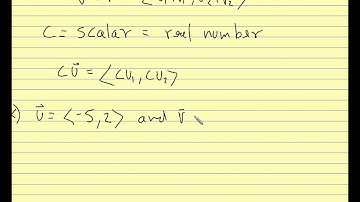 C = scalar = real number
cu⃗ = ⟨cu₁, cu₂⟩
u⃗ = ⟨-5, 2⟩ and v⃗